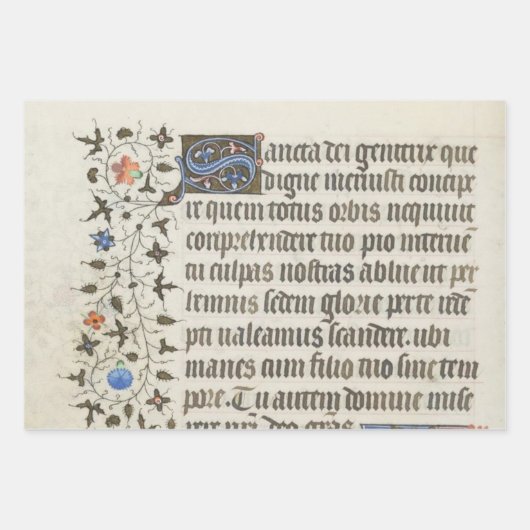 Sancta dei genitrix que
digne meruisti concipe
re quem totus orbis nequiuit
comprehendere tuo pio interue
tu culpas nostras ablue ut per
hennis sedem glorie per te rede
pti ualeamus scandere. ubi
manes cum filio tuo sine tem
pore. Tu autem domine mise
rere nri. deo gras.